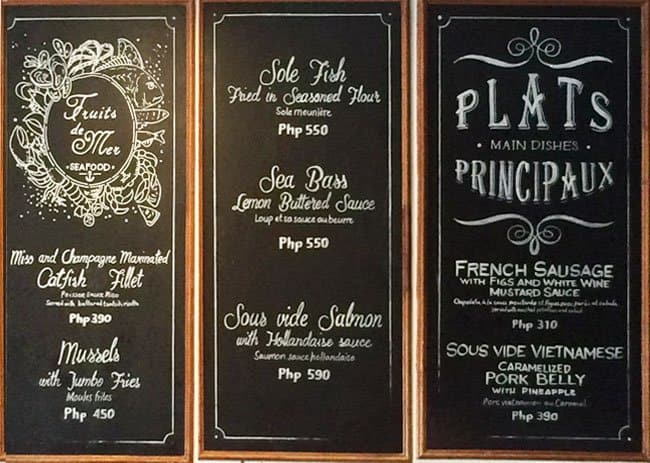 Fruits
de
Mer
• SEAFOOD •
Miso and Champagne Marinated
Catfish Fillet
Served with buttered
Php 390
Mussels
with Jumbo Fries
Moules frites
Php 450
Sole Fish
Fried in Seasoned Flour
Sole meunière
Php 550
Sea Bass
Lemon Buttered Sauce
Loup et sa sauce au beurre
Php 550
Sous vide Salmon
with Hollandaise sauce
Saumon sauce hollandaise
Php 590
PLATS
• MAIN DISHES •
PRINCIPAUX
FRENCH SAUSAGE
WITH FIGS AND WHITE WINE
MUSTARD SAUCE
Php 310
SOUS VIDE VIETNAMESE
CARAMELIZED
PORK BELLY
WITH PINEAPPLE
Porc vietnamien au Caramel
Php 390